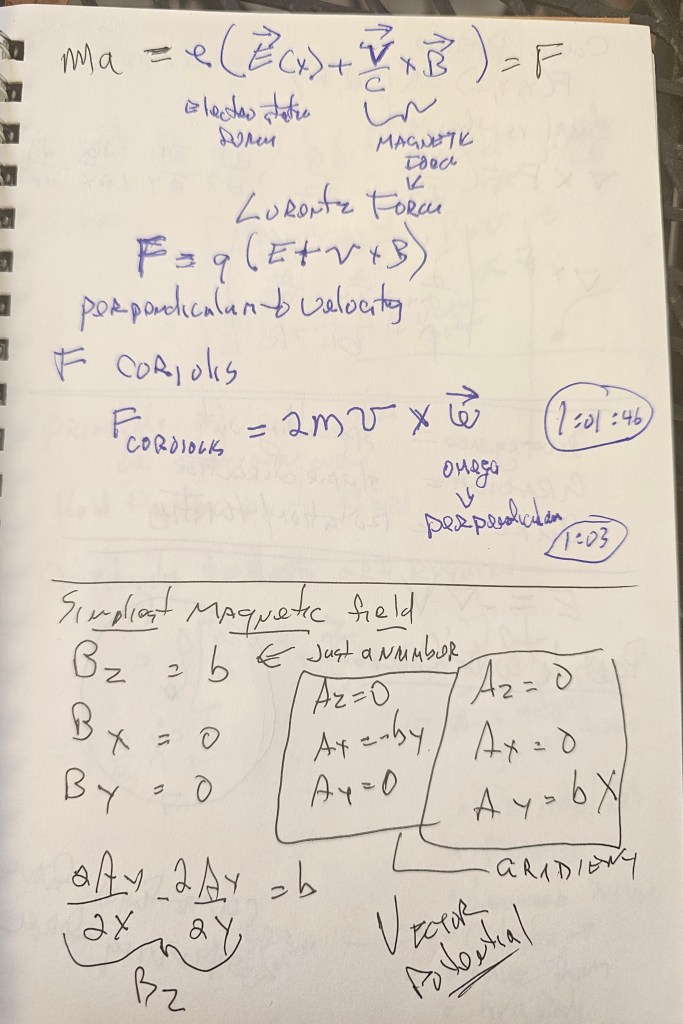 ma = e (E(x) + v/c × B) = F
Electrostatic
Force
MAGNETIC
Force
↓
LORENTZ FORCE
F = q (E + v × B)
perpendicular to velocity
F CORIOLIS
F CORIOLIS = 2mv × ω
1:01:46
omega
↓
perpendicular
1:03
Simpliest MAGNETIC field
Bz = b ← just a number
Bx = 0
By = 0
Az = 0
Ax = -by
Ay = 0
Az = 0
Ax = 0
Ay = bX
GRADIENT
∂Ay/∂x - ∂Ay/∂y = b
Bz
VECTOR
Potential